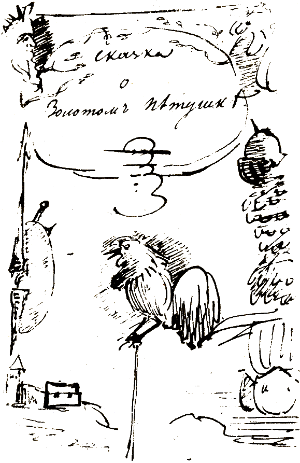 Сказка
о
Золотомъ пѣтушкѣ